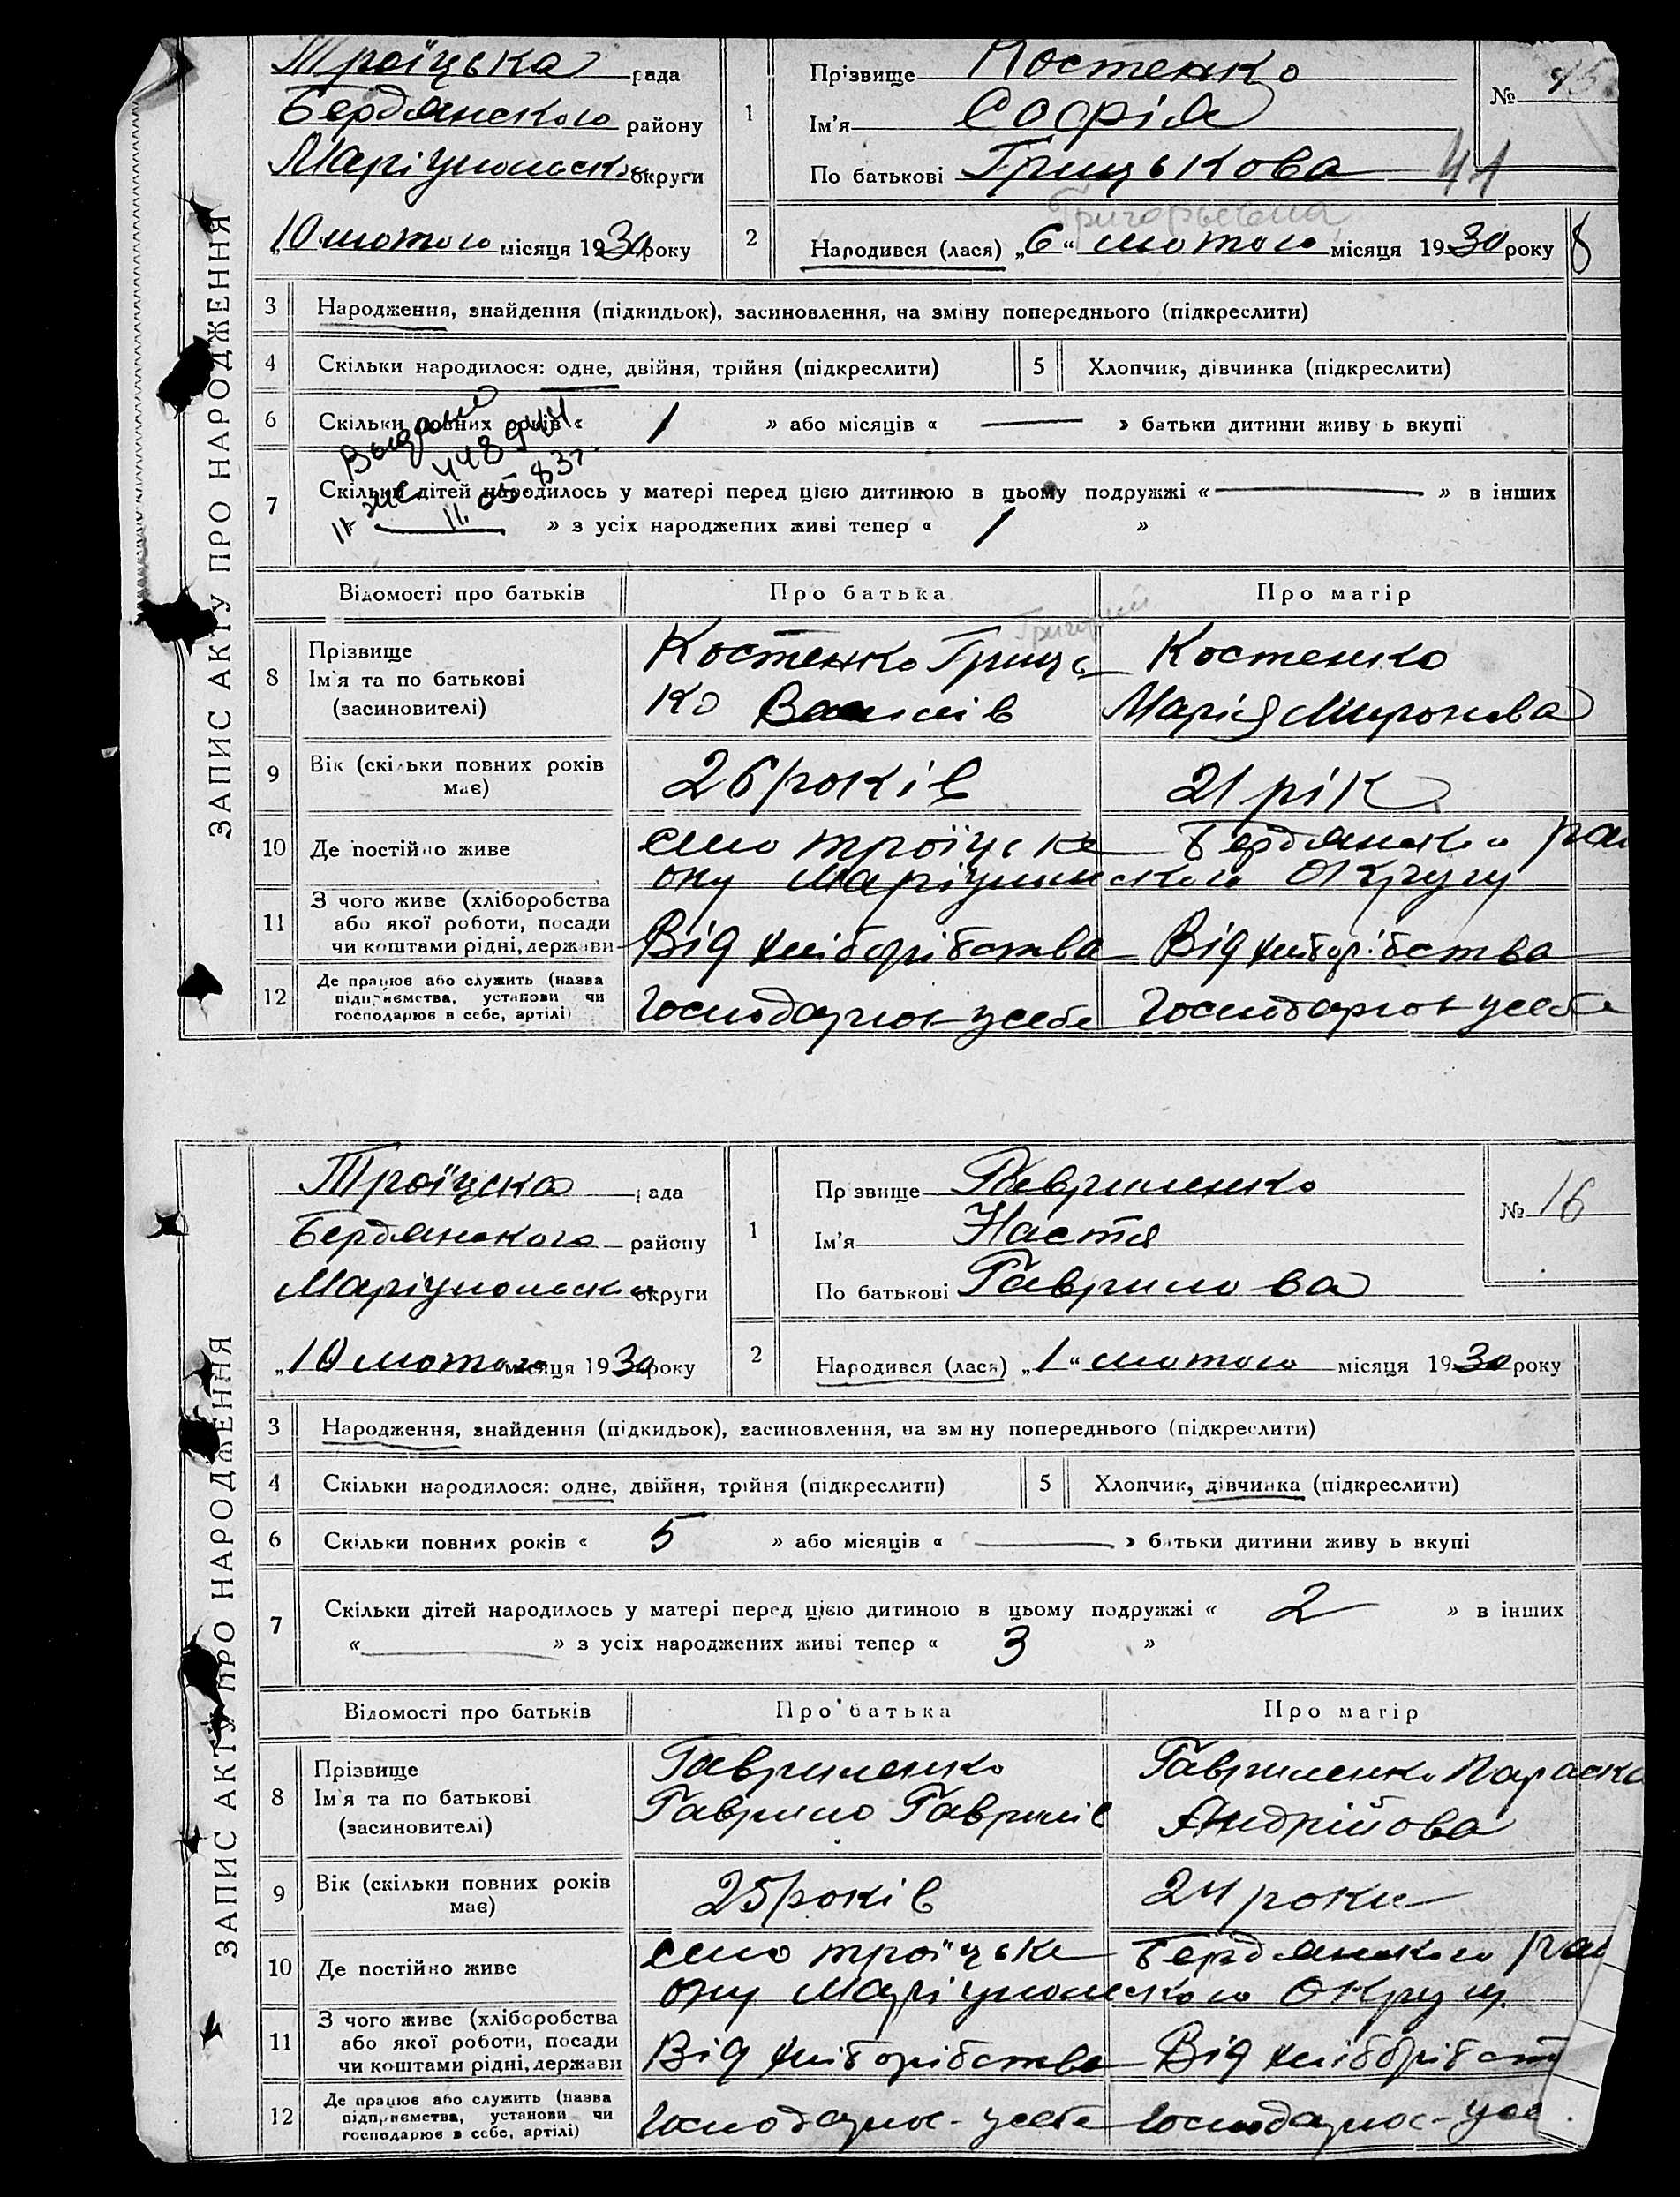 ЗАПИС АКТУ ПРО НАРОДЖЕННЯ
Троїцька рада
Бердянского району
Маріупольско округи
„10 лютого місяця 1930 року
1
Прізвище Костенко
Ім'я Софія
По батькові Грицькова
Григорьевна
№ 15
41
2
Народився (лася) „6“ лютого місяця 1930 року
8
3 Народження, знайдення (підкидьок), засиновлення, на зміну попереднього (підкреслити)
4 Скільки народилося: одне, двійня, трійня (підкреслити) 5 Хлопчик, дівчинка (підкреслити)
6 Скільки повних років « 1 » або місяців « — » батьки дитини живу ь вкупі
7 Скільки дітей народилось у матері перед цією дитиною в цьому подружжі « — » в інших
» з усіх народжених живі тепер « 1 »
448944
11. 05 83г.
Відомості про батьків Про батька Про матір
8 Прізвище
Ім'я та по батькові
(засиновителі)
Григорий
Костенко Гриць
ко
Костенко
Марія Миронова
9 Вік (скільки повних років
має)
26 років 21 рік
10 Де постійно живе
село троїцьке Бердянского рай
ону Маріупольского Округу
11 З чого живе (хліборобства
або якої роботи, посади
чи коштами рідні, держави
Від хліборібства Від хліборібства
12 Де працює або служить (назва
підприємства, установи чи
господарює в себе, артілі)
Господарює усебе Господарює усебе
ЗАПИС АКТУ ПРО НАРОДЖЕННЯ
Троїцка рада
Бердянского району
Маріупольско округи
„10 лютого місяця 1930 року
1
Пр звище Гавриленко
Ім'я Настя
По батькові Гаврилова
№ 16
2
Народився (лася) „1“ лютого місяця 1930 року
3 Народження, знайдення (підкидьок), засиновлення, на зм ну попереднього (підкреслити)
4 Скільки народилося: одне, двійня, трійня (підкреслити) 5 Хлопчик, дівчинка (підкреслити)
6 Скільки повних років « 5 » або місяців « — » батьки дитини живу ь вкупі
7 Скільки дітей народилось у матері перед цією дитиною в цьому подружжі « 2 » в інших
« — » з усіх народжених живі тепер « 3 »
Відомості про батьків Про батька Про матір
8 Прізвище
Ім'я та по батькові
(засиновителі)
Гавриленко
Гаврило Гаврилів
Гавриленко Параска
Андрійова
9 Вік (скільки повних років
має)
25 років 24 роки
10 Де постійно живе
село троїцьке Бердянского рай
ону Маріупольского Округу
11 З чого живе (хліборобства
або якої роботи, посади
чи коштами рідні, держави
Від хліборібства Від хліборібст
12 Де працює або служить (назва
підприємства, установи чи
господарює в себе, артілі)
Господарює-усебе Господарює-усе